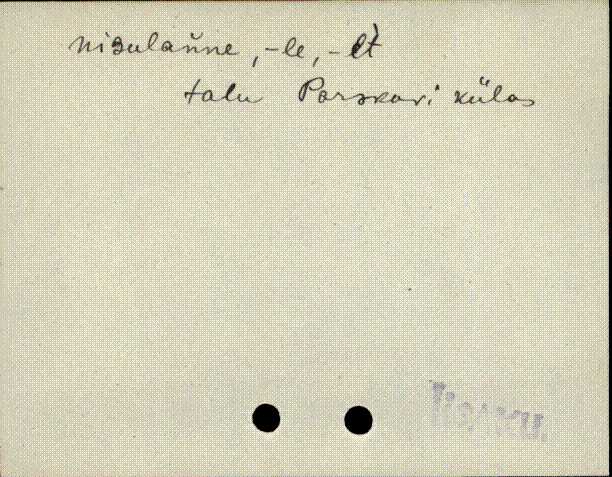 nisulaŭne, -le, -lt̀
talu Parskari külas
Iisaku.